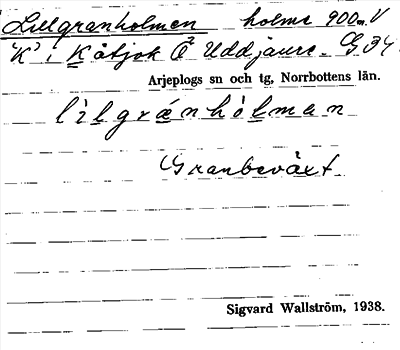 Lillgranholmen holme 900 m V
K² i Kåtjok Ö² Uddjaure. G 34
Arjeplogs sn och tg, Norrbottens län.
lìlgránhòlmen
Granbeväxt.
Sigvard Wallström, 1938.